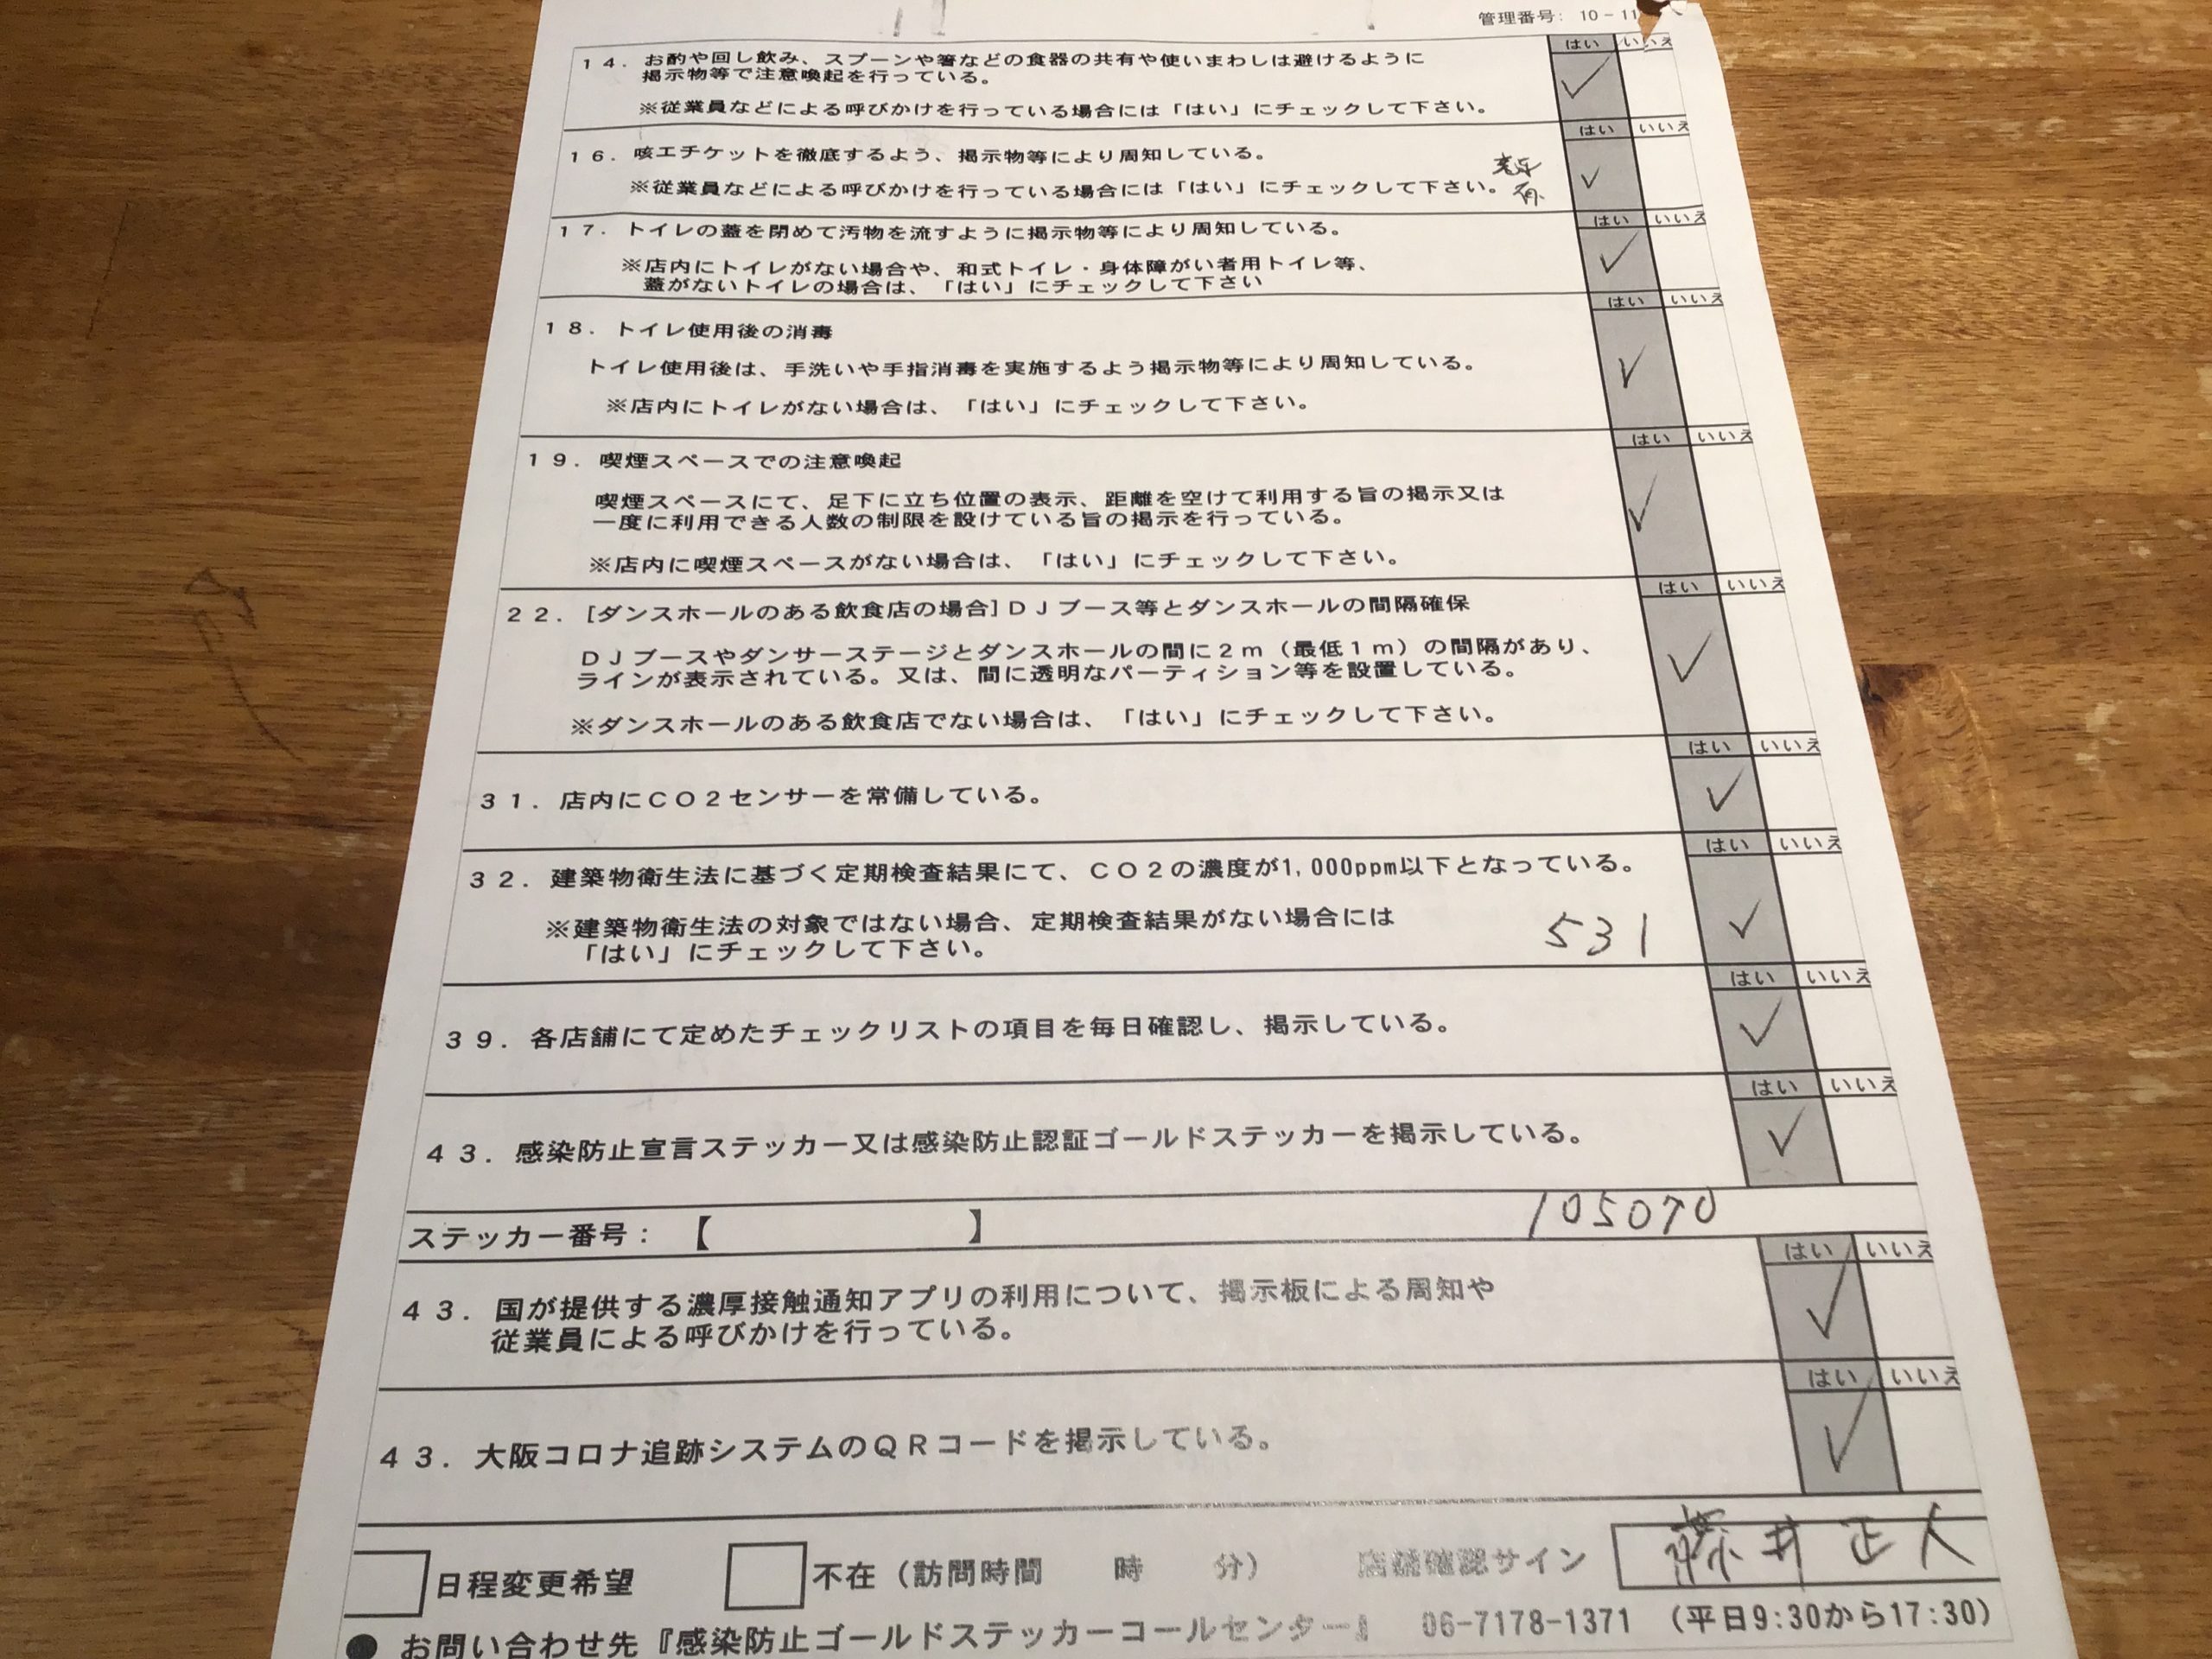 管理番号: 10-11
はい いいえ
14. お酌や回し飲み、スプーンや箸などの食器の共有や使いまわしは避けるように
掲示物等で注意喚起を行っている。
※従業員などによる呼びかけを行っている場合には「はい」にチェックして下さい。
はい いいえ
16. 咳エチケットを徹底するよう、掲示物等により周知している。
※従業員などによる呼びかけを行っている場合には「はい」にチェックして下さい。
はい いいえ
17. トイレの蓋を閉めて汚物を流すように掲示物等により周知している。
※店内にトイレがない場合や、和式トイレ・身体障がい者用トイレ等、
蓋がないトイレの場合は、「はい」にチェックして下さい
はい いいえ
18. トイレ使用後の消毒
トイレ使用後は、手洗いや手指消毒を実施するよう掲示物等により周知している。
※店内にトイレがない場合は、「はい」にチェックして下さい。
はい いいえ
19. 喫煙スペースでの注意喚起
喫煙スペースにて、足下に立ち位置の表示、距離を空けて利用する旨の掲示又は
一度に利用できる人数の制限を設けている旨の掲示を行っている。
※店内に喫煙スペースがない場合は、「はい」にチェックして下さい。
はい いいえ
22. [ダンスホールのある飲食店の場合]DJブース等とダンスホールの間隔確保
DJブースやダンサーステージとダンスホールの間に2m(最低1m)の間隔があり、
ラインが表示されている。又は、間に透明なパーティション等を設置している。
※ダンスホールのある飲食店でない場合は、「はい」にチェックして下さい。
はい いいえ
31. 店内にCO2センサーを常備している。
はい いいえ
32. 建築物衛生法に基づく定期検査結果にて、CO2の濃度が1,000ppm以下となっている。
※建築物衛生法の対象ではない場合、定期検査結果がない場合には
「はい」にチェックして下さい。
531
はい いいえ
39. 各店舗にて定めたチェックリストの項目を毎日確認し、掲示している。
はい いいえ
43. 感染防止宣言ステッカー又は感染防止認証ゴールドステッカーを掲示している。
ステッカー番号: 【 】 105070
はい いいえ
43. 国が提供する濃厚接触通知アプリの利用について、掲示板による周知や
従業員による呼びかけを行っている。
はい いいえ
43. 大阪コロナ追跡システムのQRコードを掲示している。
日程変更希望 不在(訪問時間 時 分) 店舗確認サイン 藤井 正人
● お問い合わせ先『感染防止ゴールドステッカーコールセンター』 06-7178-1371 (平日9:30から17:30)